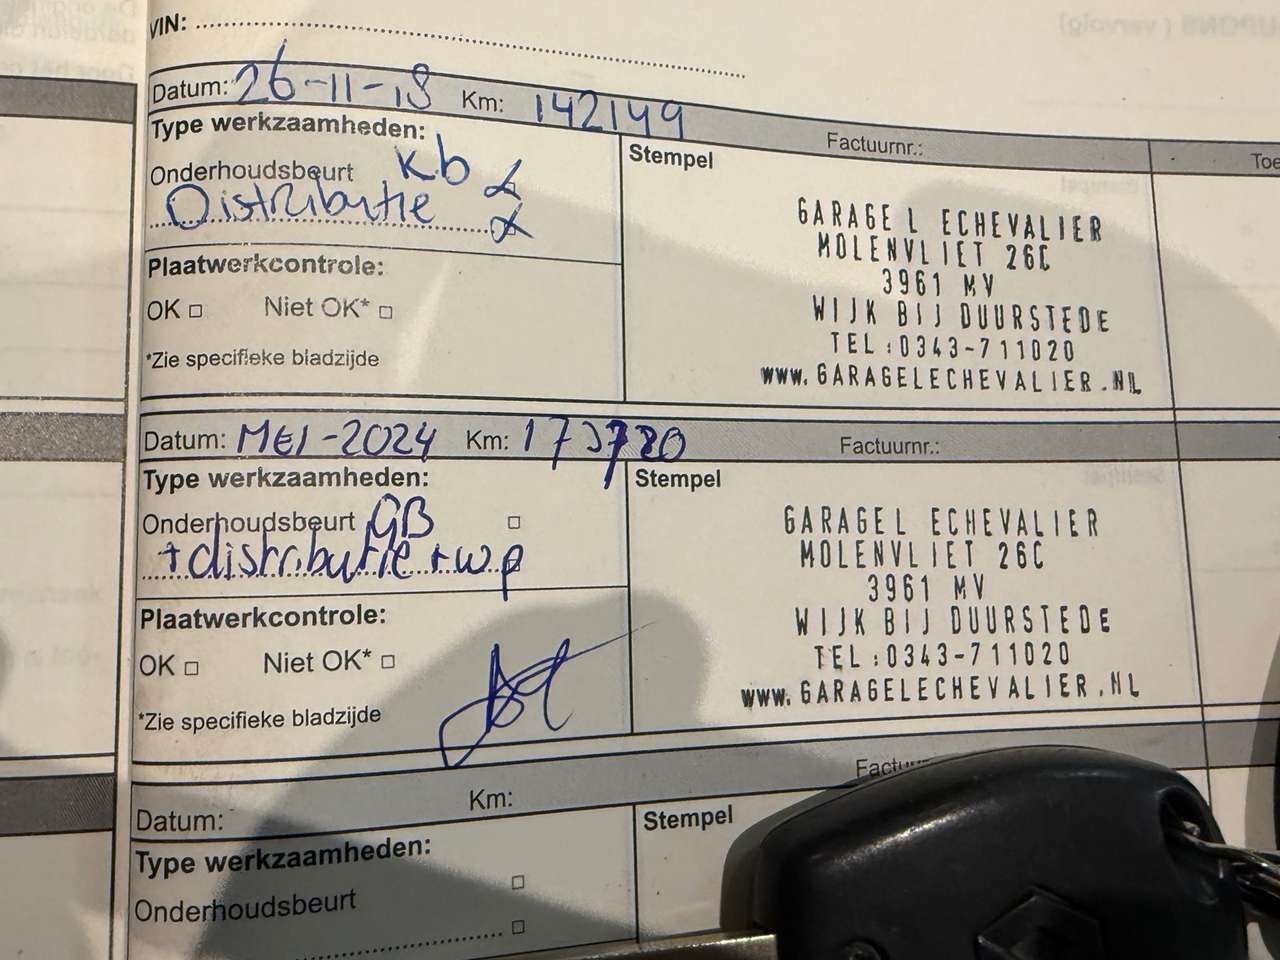 VIN:
Datum: 26-11-18 Km: 142149 Factuurnr.:
Type werkzaamheden:
Onderhoudsbeurt kb
Distributie
Stempel
Toe
GARAGE L ECHEVALIER
MOLENVLIET 26C
3961 MV
WIJK BIJ DUURSTEDE
TEL:0343-711020
www.GARAGELECHEVALIER.NL
Plaatwerkcontrole:
OK □ Niet OK* □
*Zie specifieke bladzijde
Datum: MEI-2024 Km: Factuurnr.:
Type werkzaamheden:
Onderhoudsbeurt GB □
+distributie + wp
Stempel
GARAGE L ECHEVALIER
MOLENVLIET 26C
3961 MV
WIJK BIJ DUURSTEDE
TEL:0343-711020
www.GARAGELECHEVALIER.NL
Plaatwerkcontrole:
OK □ Niet OK* □
*Zie specifieke bladzijde
Datum: Km: Factu
Type werkzaamheden:
Onderhoudsbeurt □
□
Stempel